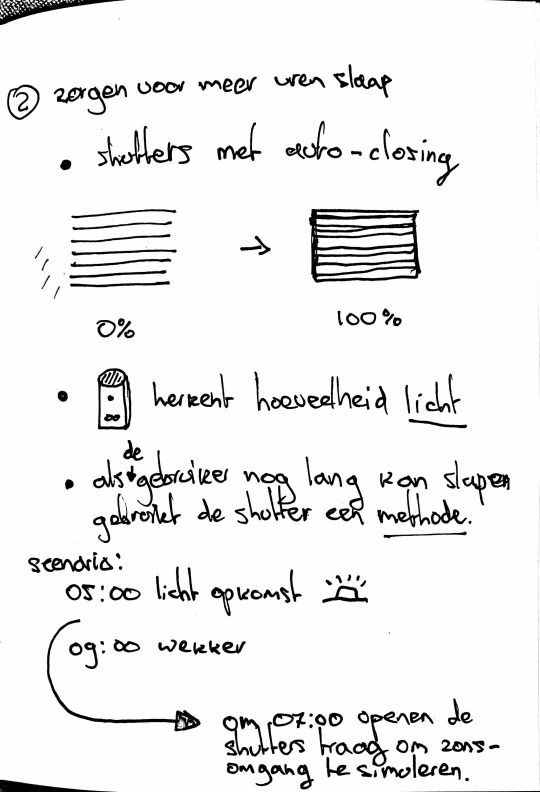 ② zorgen voor meer uren slaap
• shutters met auto-closing
0% → 100%
• herkent hoeveelheid licht
• als de gebruiker nog lang kan slapen
gebruikt de shutter een methode.
scenario:
05:00 licht opkomst
09:00 wekker
om 07:00 openen de
shutters traag om zons-
omgang te simuleren.